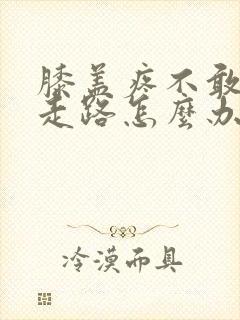 膝盖疼不敢
走路怎麽办
冷漠而具